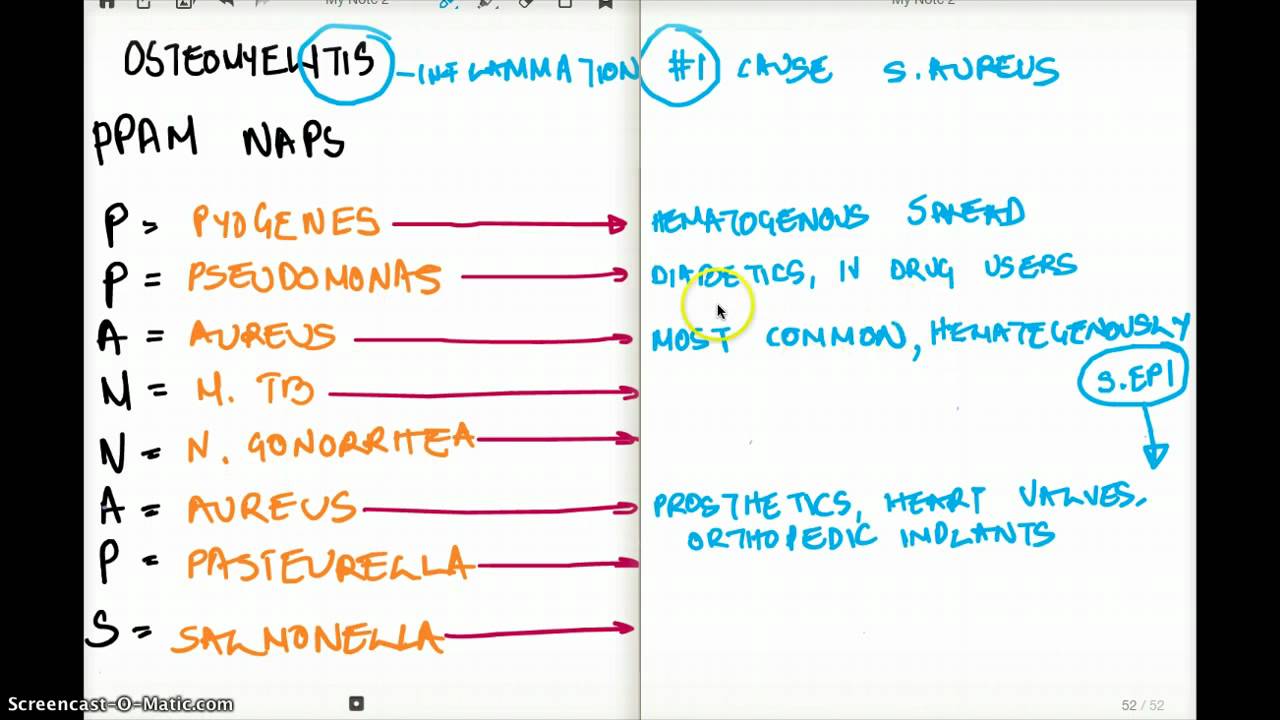 My Note 2
My Note 2
OSTEOMYELITIS - INFLAMMATION #1 CAUSE S. AUREUS
PPAM NAPS
P = PYOGENES HEMATOGENOUS SPREAD
P = PSEUDOMONAS DIABETICS, IV DRUG USERS
A = AUREUS MOST COMMON, HEMATEGENOUSLY
M = M. TB S. EPI
N = N. GONORRHEA
A = AUREUS PROSTHETICS, HEART VALVES,
ORTHOPEDIC IMPLANTS
P = PASTEURELLA
S = SALMONELLA
Screencast-O-Matic.com
52 / 52